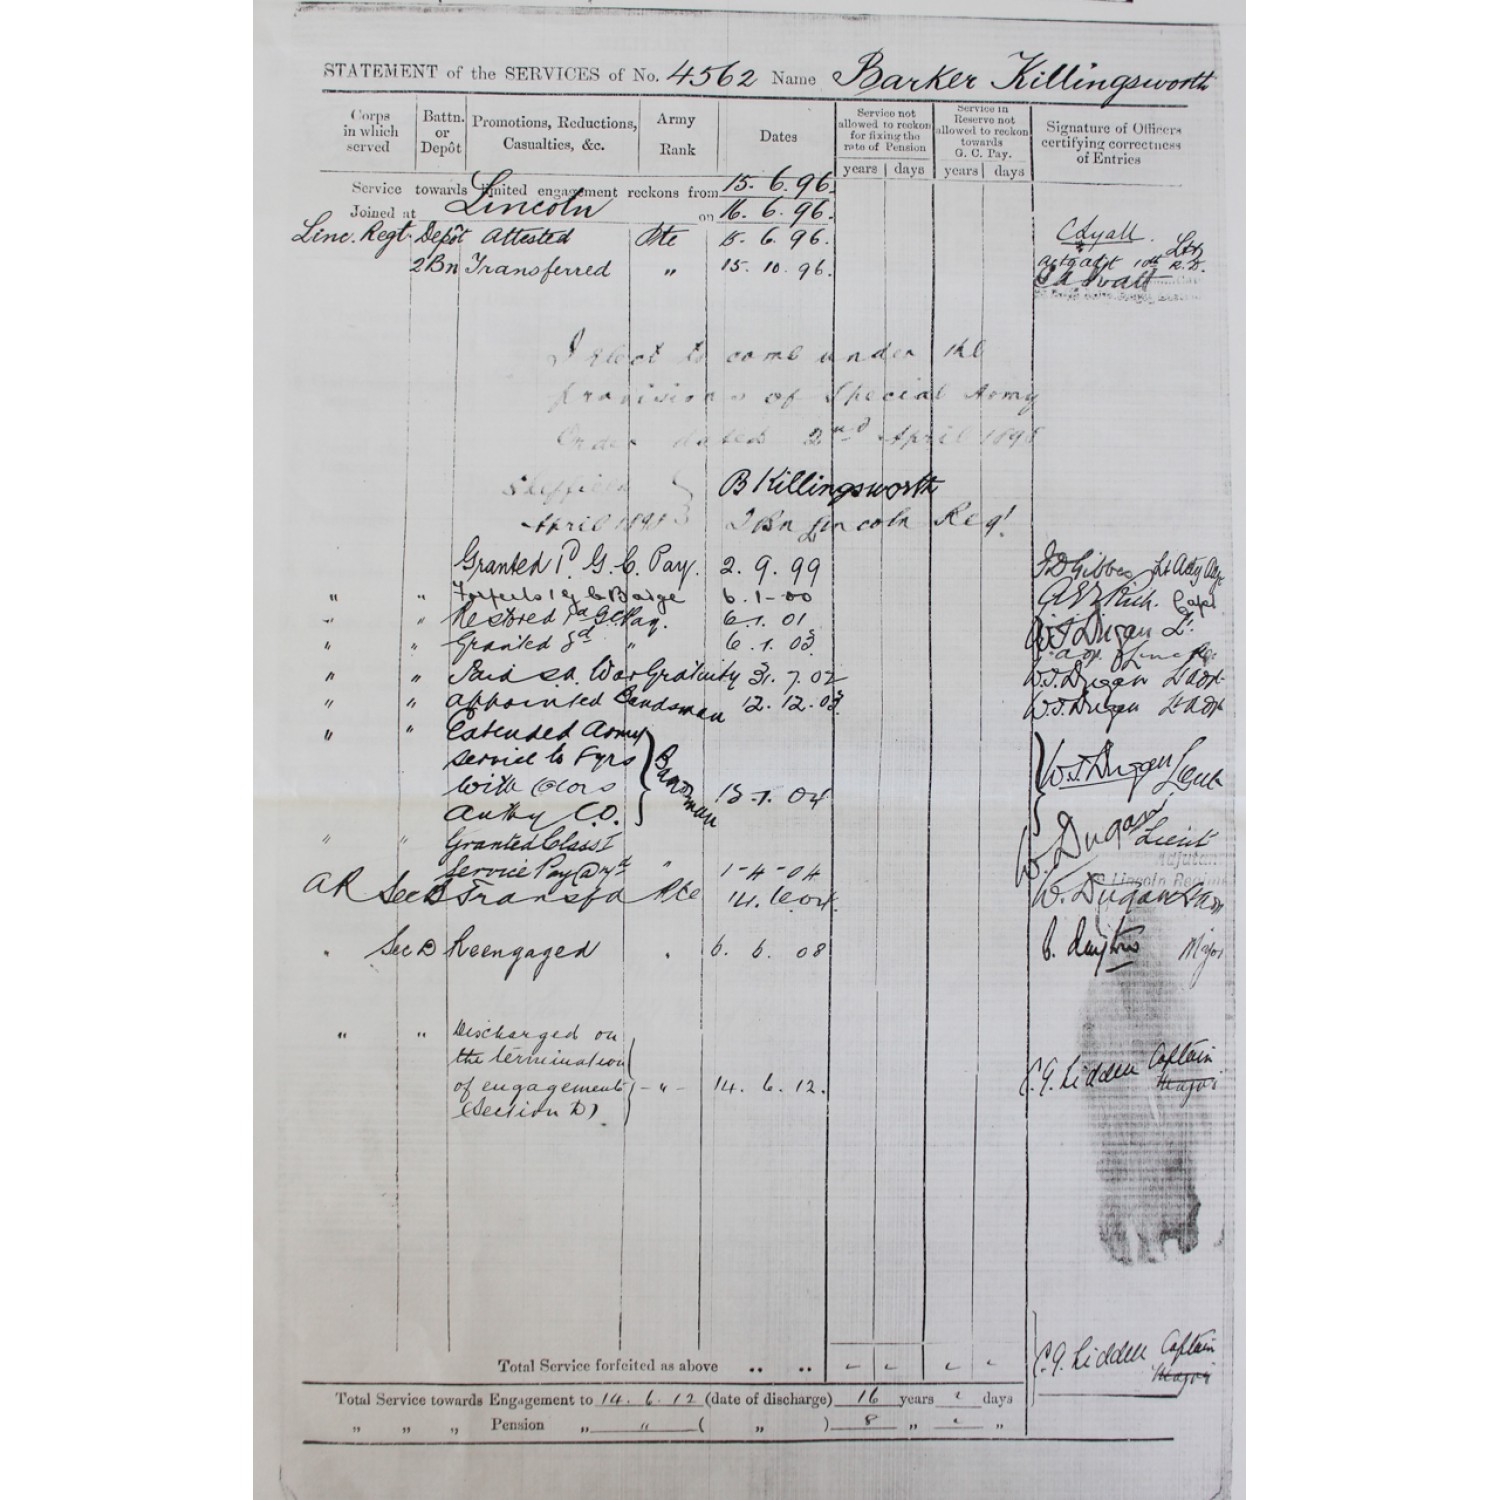 STATEMENT of the SERVICES of No. 4562 Name Barker Killingsworth
Corps in which served
Battn. or Depôt
Promotions, Reductions, Casualties, &c.
Army Rank
Dates
Service not allowed to reckon for fixing the rate of Pension
Service in Reserve not allowed to reckon towards G. C. Pay.
Signature of Officers certifying correctness of Entries
years days years days
Service towards limited engagement reckons from 15. 6. 96.
Joined at Lincoln on 16. 6. 96.
Linc. Regt. Depôt Attested Pte 15. 6. 96. C Lyall. Lt
2 Bn Transferred " 15. 10. 96.
I elect to come under the
provisions of Special Army
Order dated 2nd April 1898
Sheffield } B Killingsworth
April 1898 } 2 Bn Lincoln Regt
Granted 1d. G. C. Pay. 2. 9. 99 Gibbes Lt
" " Forfeits 1 G C Badge 6. 1-00 Rich. Capt
" " Restored 1d GCPay. 6. 1. 01 W.J. Dugan Lt.
" " Granted " 6. 1. 03
" " Paid War Gratuity 31. 7. 02 W.J. Dugan Lt Adjt
" " appointed Bandsman 12. 12. 03. W.J. Dugan Lt Adjt
" " Extended Army
service to 8 yrs
with Colors
Authy C.O. } Bandsman 04 W.J. Dugan Lieut
" " Granted Class I
Service Pay @ " 1-4-04 W. Dugan Lieut
Adjutant
Lincoln Regim
AR Sec B Transfd Pte 14. 6. 04. W. Dugan Lt Adjt
" Sec D Reengaged " 6. 6. 08 Major
" " Discharged on
the termination
of engagement - " - 14. 6. 12. C. G. Liddell Captain Major
(Section D).
Total Service forfeited as above .. .. C. G. Liddell Captain Major
Total Service towards Engagement to 14. 6. 12 (date of discharge) 16 years days
" " " Pension " " ( " ) 8 " "